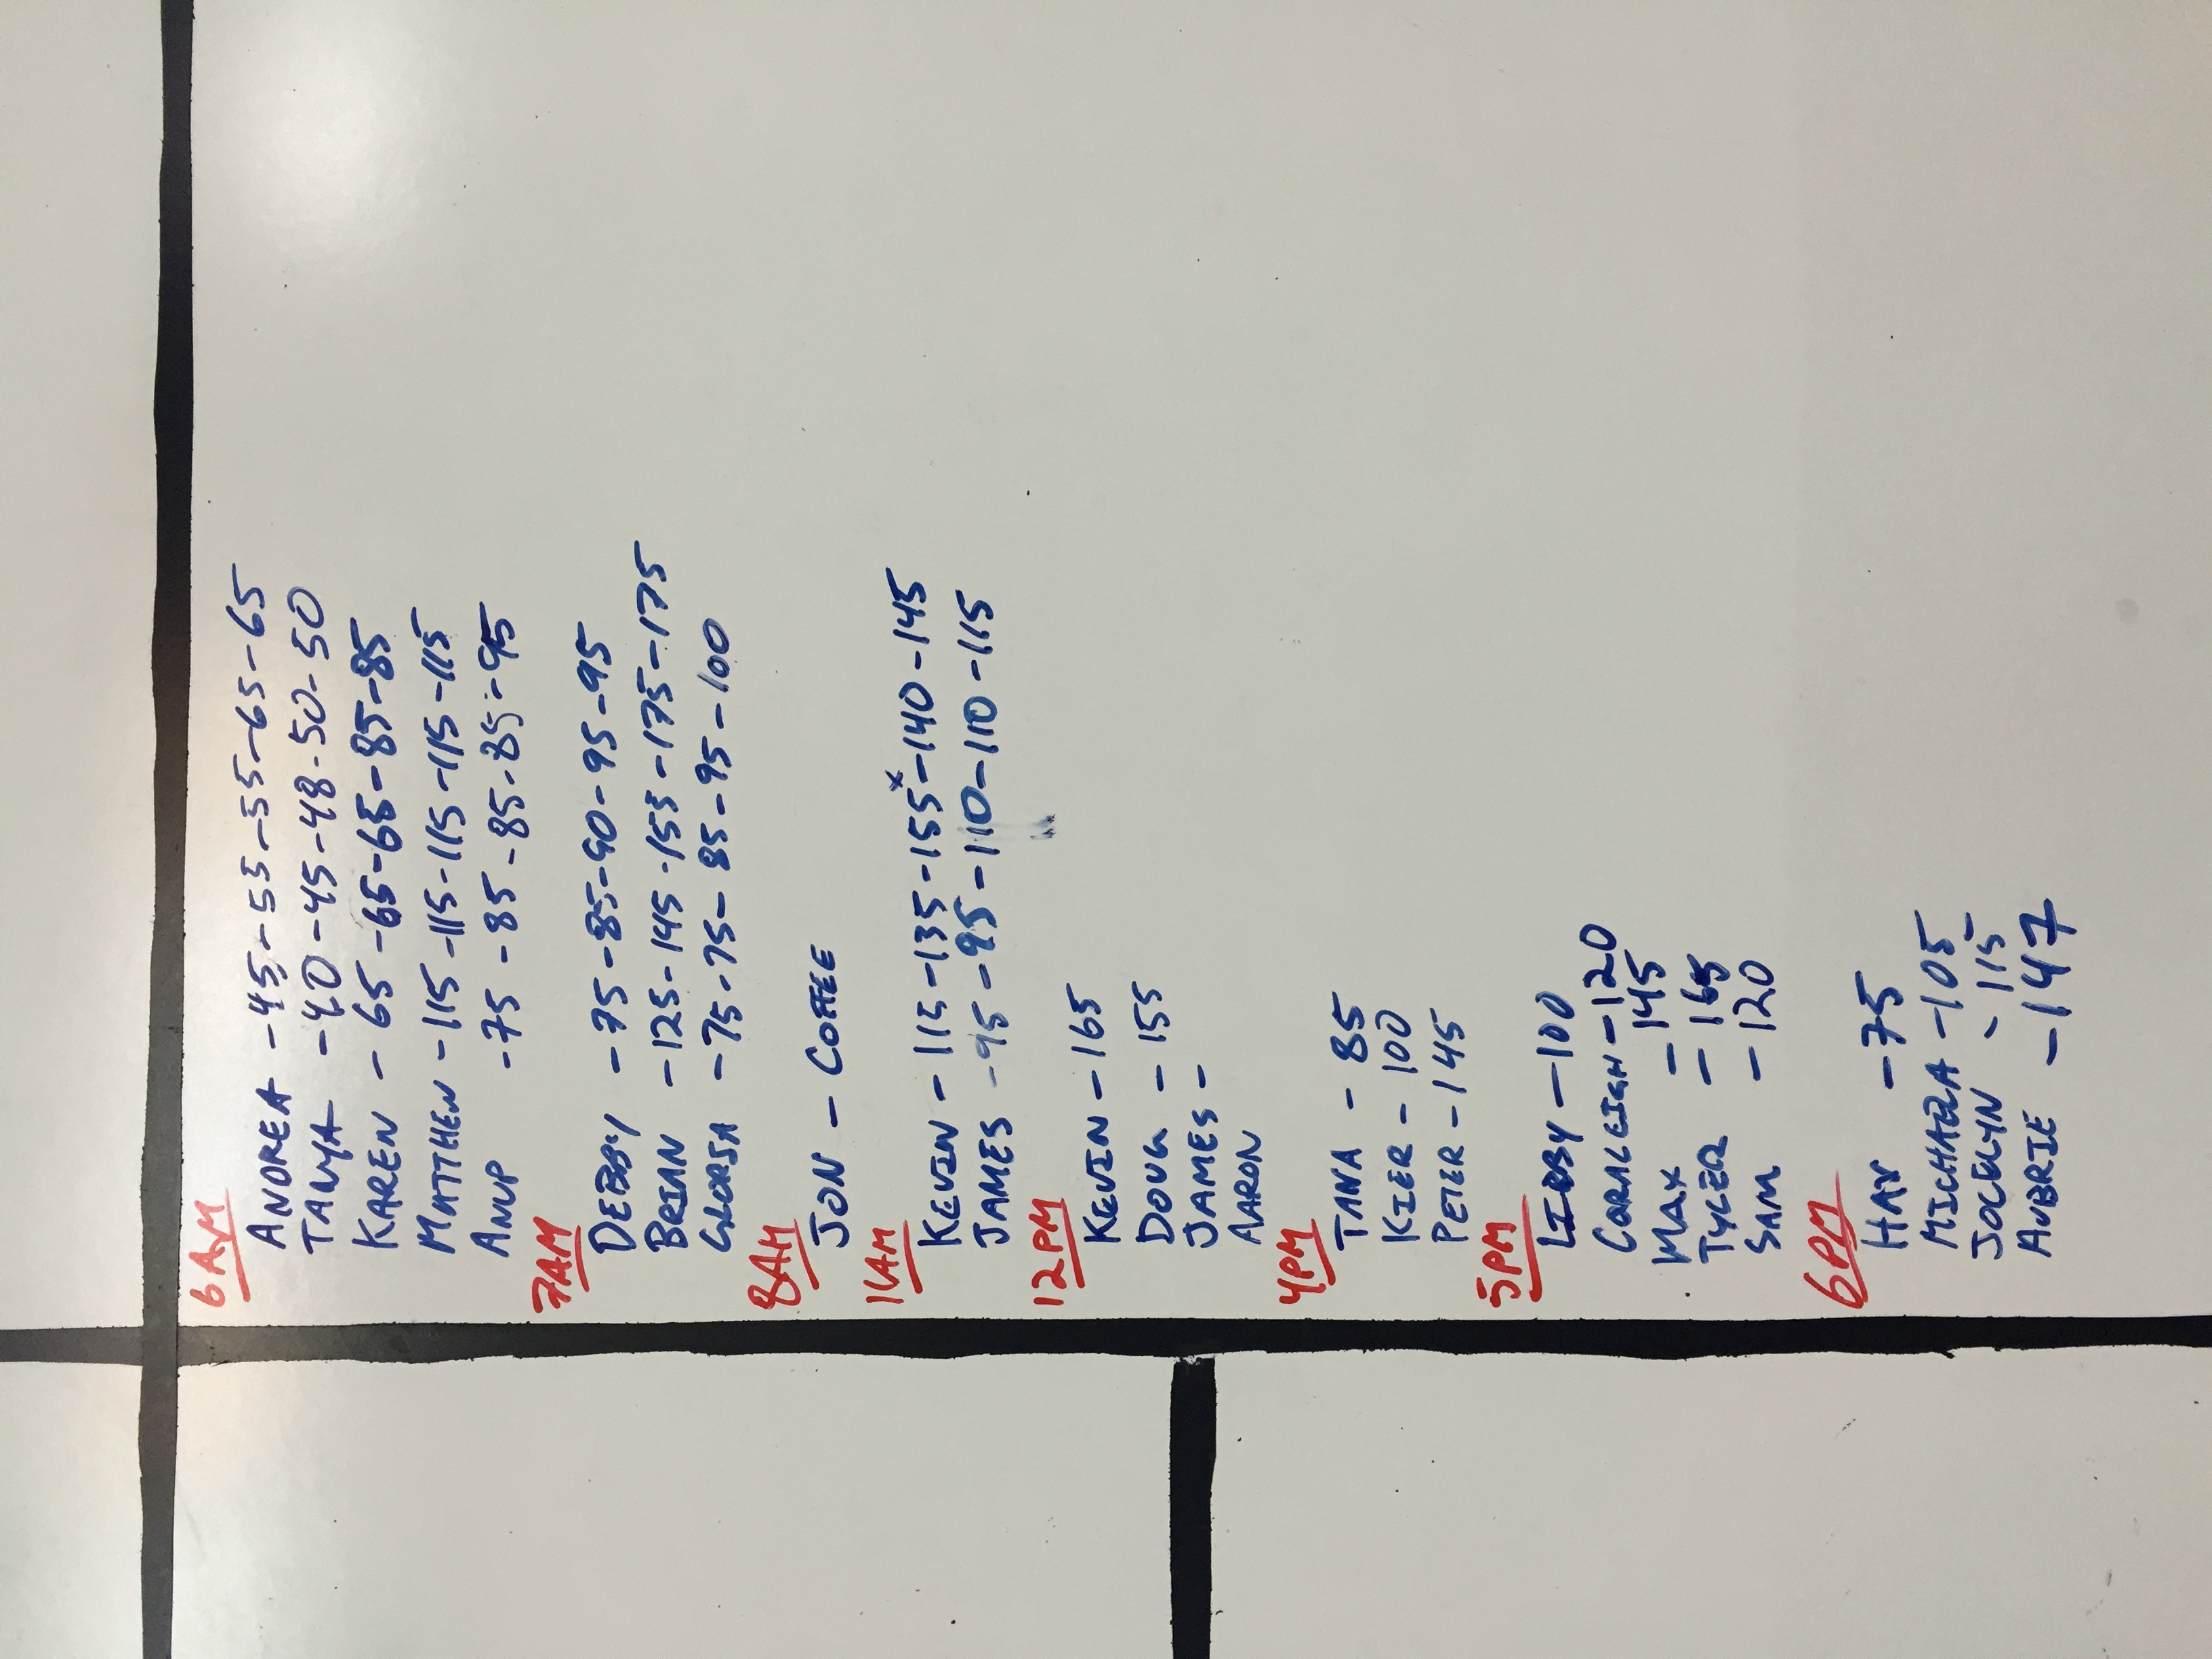 6AM
ANDREA - 45 - 55 - 55 - 55 - 65 - 65
TANYA - 40 - 45 - 48 - 50 - 50
KAREN - 65 - 65 - 65 - 65 - 85 - 85
MATTHEW - 115 - 115 - 115 - 115 - 115 - 115
ANUP - 75 - 85 - 85 - 85 - 85 - 95
7AM
DEBBY - 75 - 85 - 90 - 95 - 95
BRIAN - 125 - 145 - 155 - 175 - 175
GLORIA - 75 - 75 - 85 - 95 - 100
8AM
JON - COFFEE
11AM
KEVIN - 115 - 135 - 155* - 140 - 145
JAMES - 95 - 95 - 110 - 110 - 115
12PM
KEVIN - 165
DOUG - 155
JAMES -
AARON
4PM
TANA - 85
KIER - 100
PETER - 145
5PM
LIBBY - 100
CORALEIGH - 120
MAX - 145
TYLER - 165
SAM - 120
6PM
HAN - 75
MICHAELA - 105
JOCELYN - 115
AUBRIE - 147